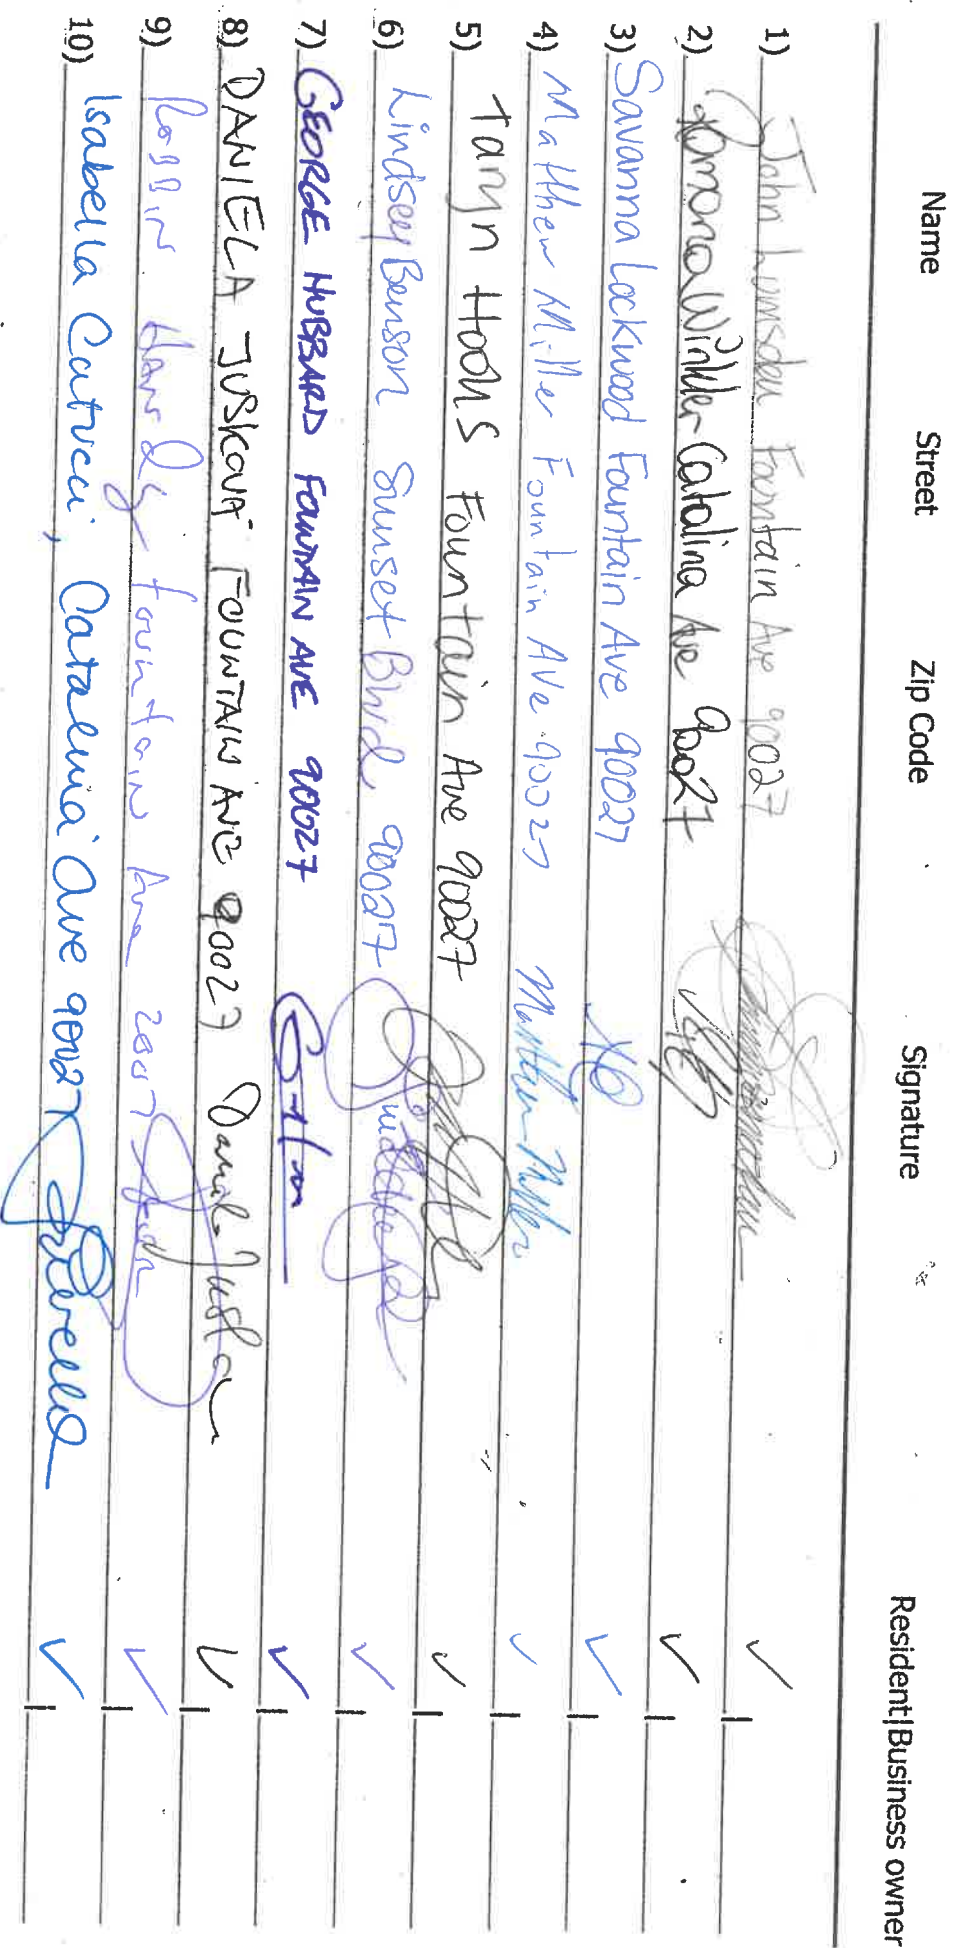 Name Street Zip Code Signature Resident|Business owner
1) John Lumsden Fountain Ave 90027
2) Ramona Winkler Catalina Ave 90027
3) Savanna Lockwood Fountain Ave 90027
4) Matthew Miller Fountain Ave 90027 Matthew Miller
5) Taryn Hooks Fountain Ave 90027
6) Lindsey Benson Sunset Blvd 90027
7) GEORGE HUBBARD FOUNTAIN AVE 90027
8) DANIELA JUSKOVÁ FOUNTAIN AVE 90027
9) Hardy Fountain Ave
10) Isabella Catucci, Catalina Ave 90027